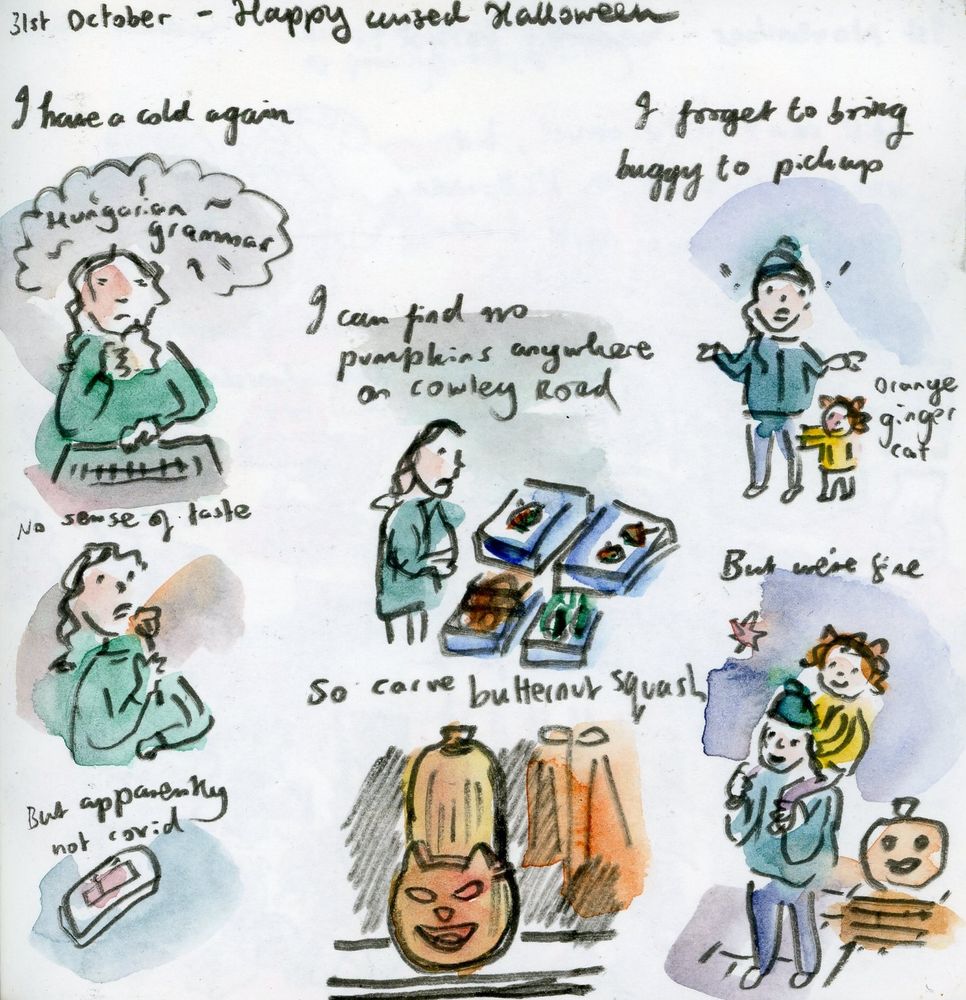 31st October - Happy cursed Halloween
I have a cold again
Hungarian
grammar
No sense of taste
But apparently
not covid
I can find no
pumpkins anywhere
on Cowley Road
So carve butternut squash
I forget to bring
buggy to pickup
Orange
ginger
cat
But we're fine